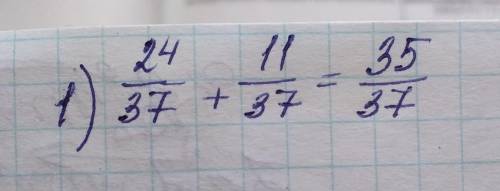 1) 24/37 + 11/37 = 35/37